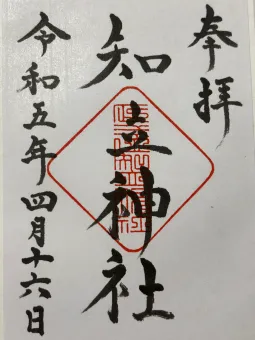 奉拝
知立神社
令和五年四月十六日